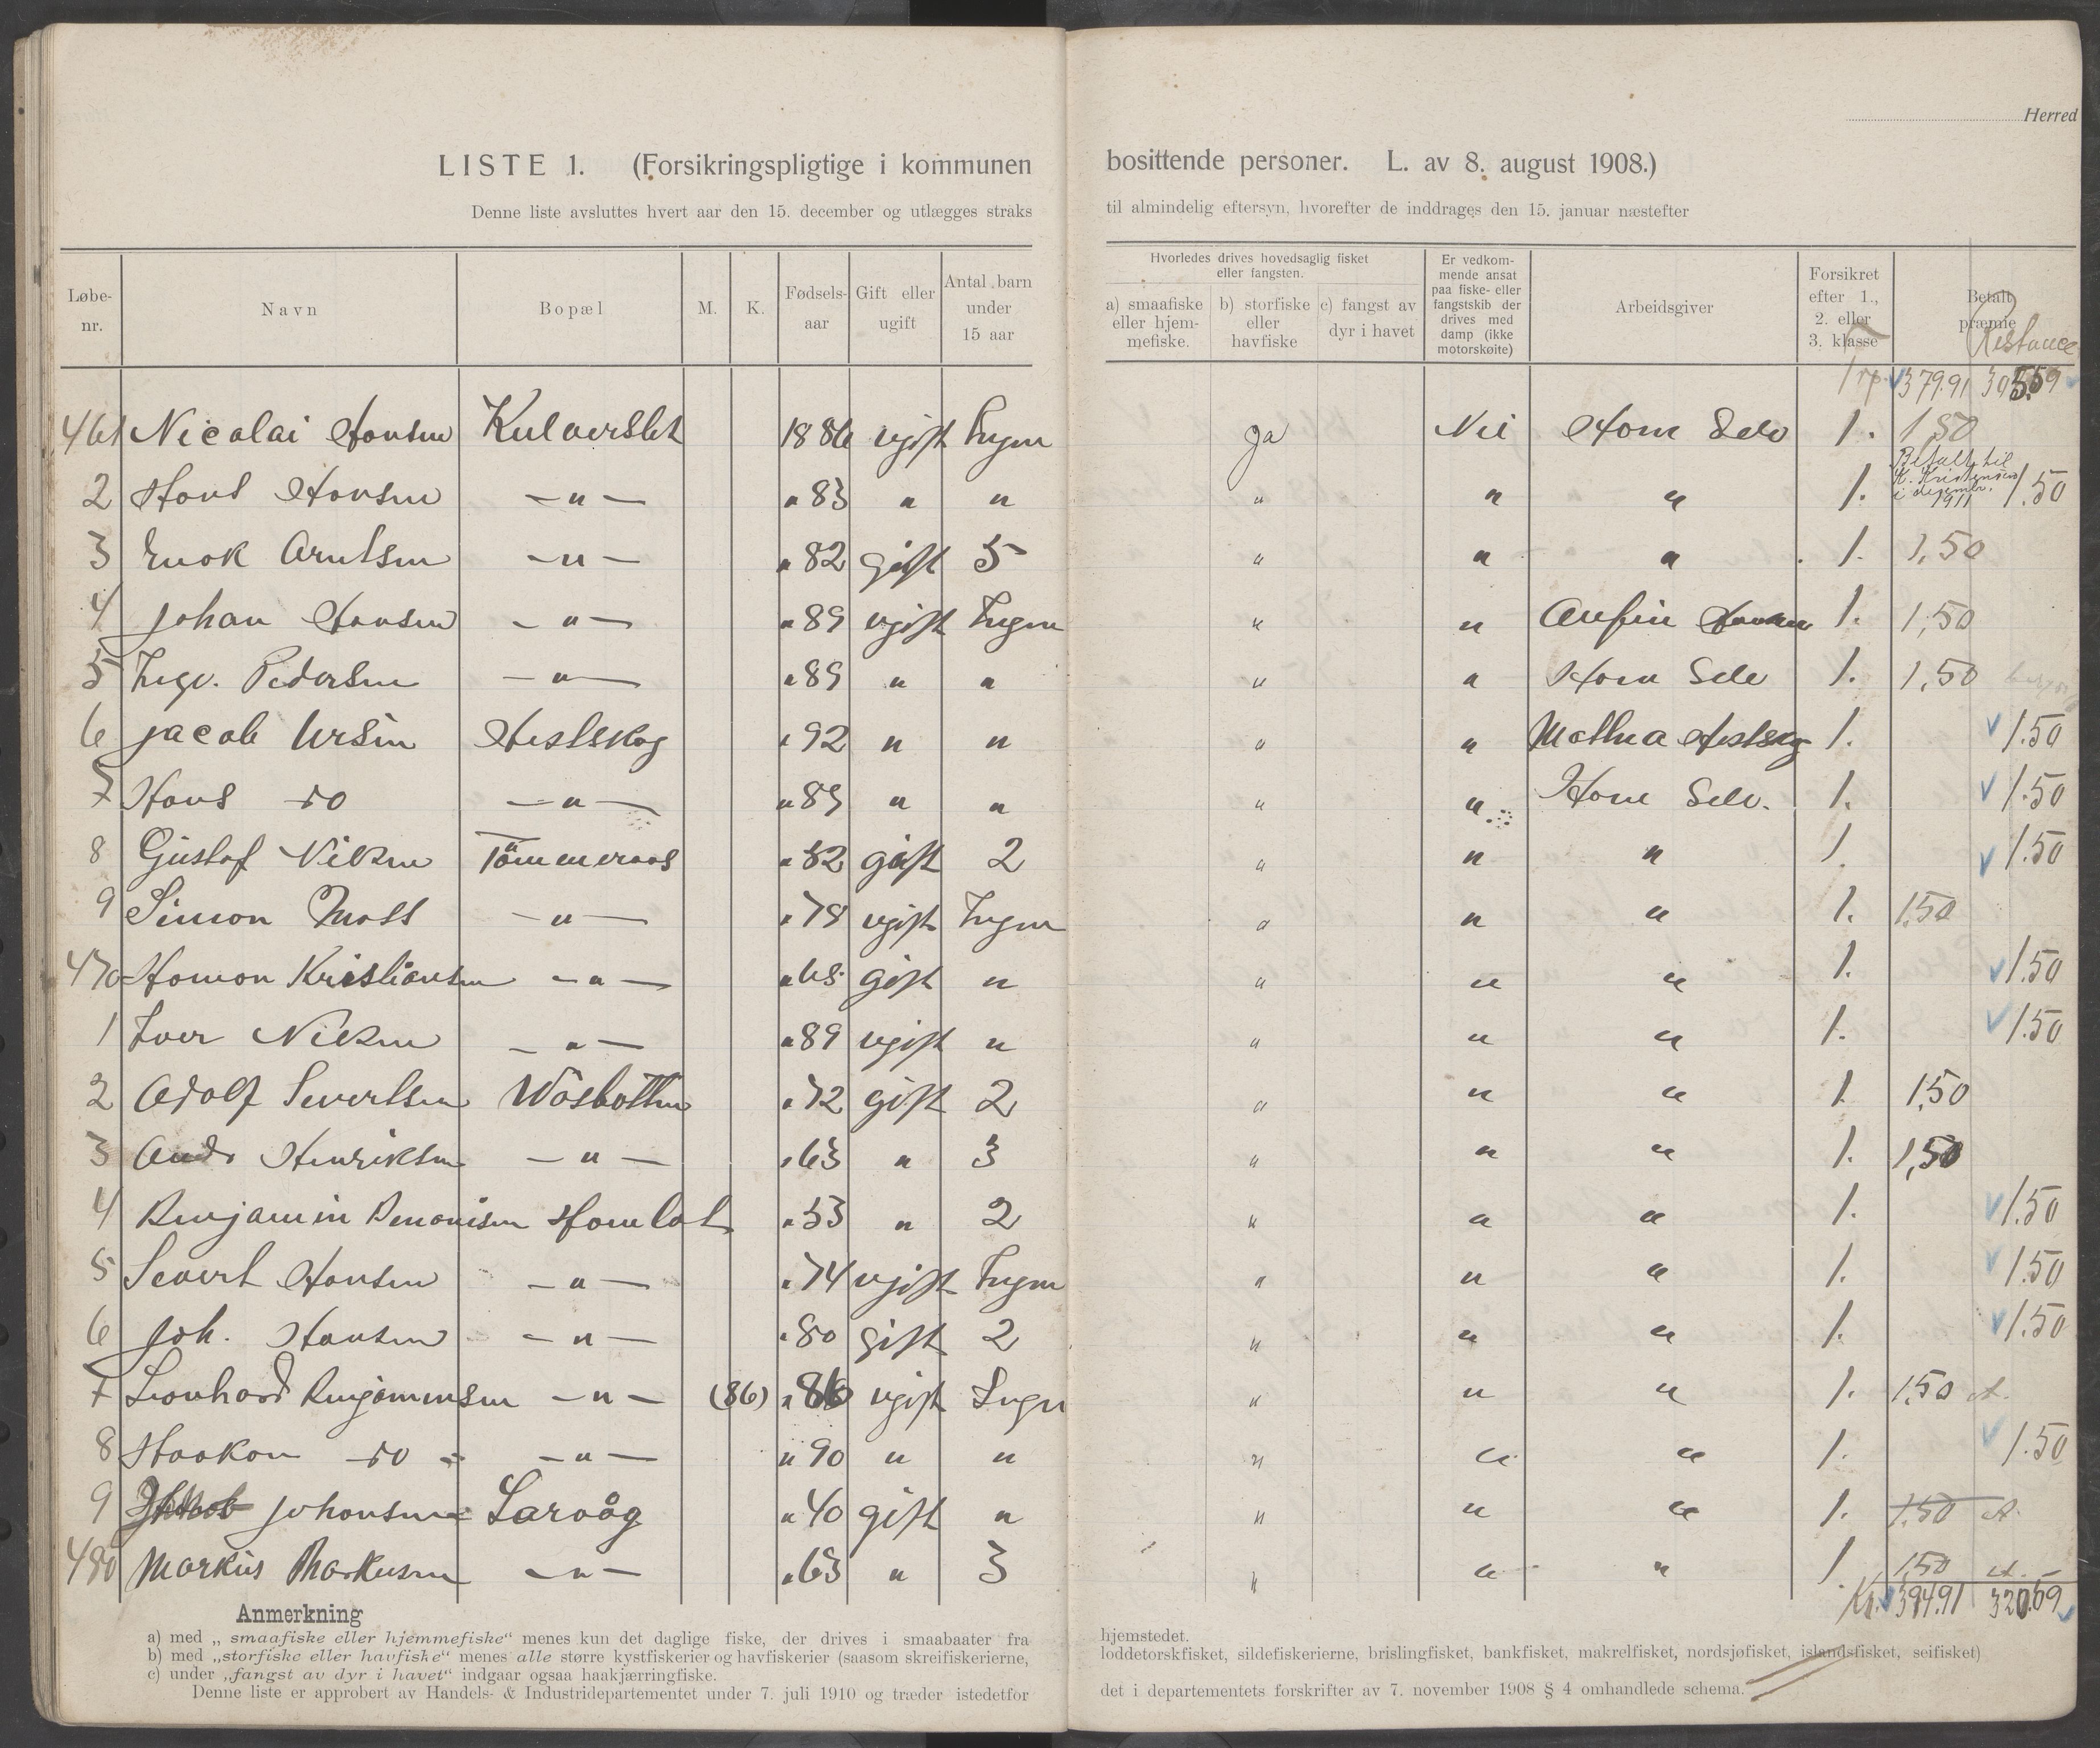 Herred
LISTE 1. (Forsikringspligtige i kommunen bosittende personer. L. av 8. august 1908.)
Denne liste avsluttes hvert aar den 15. december og utlægges straks til almindelig eftersyn, hvorefter de inddrages den 15. januar næstefter
Løbe-nr. Navn Bopæl M. K. Fødsels-aar Gift eller ugift Antal barn under 15 aar Hvorledes drives hovedsaglig fisket eller fangsten. a) smaafiske eller hjem-mefiske. b) storfiske eller havfiske c) fangst av dyr i havet Er vedkom-mende ansat paa fiske- eller fangstskib der drives med damp (ikke motorskøite) Arbeidsgiver Forsikret efter 1., 2. eller 3. klasse Betalt præmie Restance
379.91 305.59
461 Nicolai Hansen Kulverslet 1886 ugift Ingen ja Nei Ham Selv 1. 1,50
2 Hans Hansen — " — " 83 " " " " " 1. Betalt til H. Kristensen i desember 1911 1.50
3 Enok Arntsen — " — " 82 gift 5 " " " 1. 1,50
4 Johan Hansen — " — " 89 ugift Ingen " " Anfin Hansen 1. 1,50
5 Ingv. Pedersen — " — " 89 " " " " Ham Selv 1. 1,50
6 Jacob Ursin Hestskog " 92 " " " " Mathea Hestskog 1. 1.50
7 Hans do — " — " 89 " " " " Ham Selv. 1. 1.50
8 Gustaf Nilsen Tömmeraas " 82 gift 2 " " " 1. 1.50
9 Simon Moss — " — " 78 ugift Ingen " " " 1. 1,50
470 Hamon Kristiansen — " — " 68 gift " " " " 1. 1.50
1 Iver Nilsen — " — " 89 ugift " " " " 1. 1.50
2 Adolf Sivertsen Wasbotten " 72 gift 2 " " " 1. 1,50
3 Andr Henriksen — " — " 63 " 3 " " " 1. 1,50
4 Benjamin Benonisen Hamlot " 53 " 2 " " " 1. 1.50
5 Severt Hansen — " — " 74 ugift Ingen " " " 1. 1.50
6 Joh. Hansen — " — " 80 gift 2 " " " 1. 1.50
7 Leonhard Benjaminsen — " — (86) " 86 ugift Ingen " " " 1. 1,50
8 Haakon do — " — " 90 " " " " " 1. 1.50
9 Johansen Larvåg " 40 gift " " " " 1. 1.50
480 Markus Markusen — " — " 63 " 3 " " " 1 1,50
Kr. 394.91 320.59
Anmerkning
a) med „smaafiske eller hjemmefiske“ menes kun det daglige fiske, der drives i smaabaater fra hjemstedet.
b) med „storfiske eller havfiske“ menes alle større kystfiskerier og havfiskerier (saasom skreifiskerierne, loddetorskfisket, sildefiskerierne, brislingfisket, bankfisket, makrelfisket, nordsjøfisket, islandsfisket, seifisket)
c) under „fangst av dyr i havet“ indgaar ogsaa haakjærringfiske.
Denne liste er approbert av Handels- & Industridepartementet under 7. juli 1910 og træder istedetfor det i departementets forskrifter av 7. november 1908 § 4 omhandlede schema.